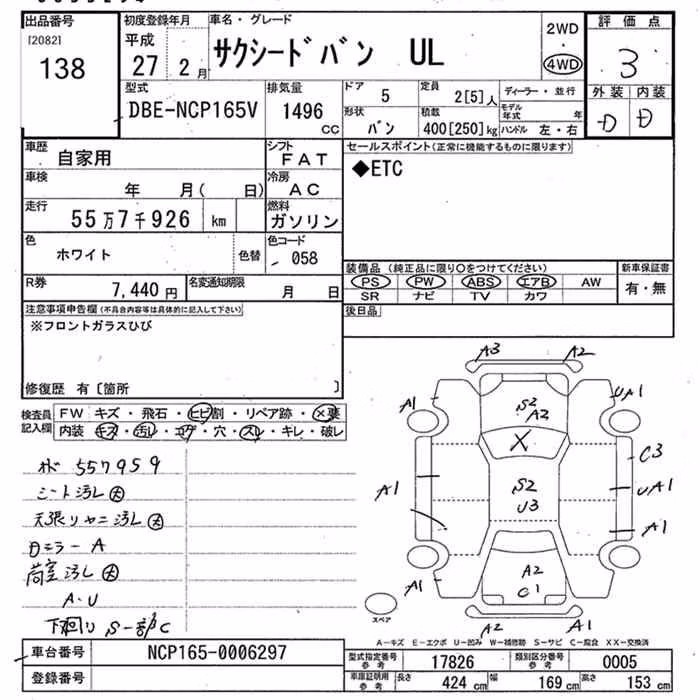 出品番号
[2082]
138
初度登録年月
平成
27 2月
車名・グレード
サクシードバン UL
2WD
・
4WD
評価点
3
外装 内装
D D
型式
DBE-NCP165V
排気量
1496
CC
ドア
5
定員
2[5]人
形状
バン
積載
400[250]kg
ディーラー・並行
モデル年式 年
ハンドル 左・右
車歴
自家用
シフト
FAT
車検
年 月( 日)
冷房
AC
走行
55万7千926 km
燃料
ガソリン
色
ホワイト
色替
色コード
058
R券
7,440円
名変通知期限
月 日
セールスポイント(正常に機能するものに限ります)
◆ETC
装備品 (純正品に限り○をつけてください)
PS PW ABS エアB AW
SR ナビ TV カワ
新車保証書
有・無
後日品
注意事項申告欄(不具合内容等は具体的に記入して下さい)
※フロントガラスひび
修復歴 有〔箇所 〕
検査員記入欄
FW キズ・飛石・ヒビ割・リペア跡・×要
内装 キズ・汚レ・コゲ・穴・スレ・キレ・破レ
557959
シート汚レ 大
天張リ 汚レ 大
ミラー A
荷室汚レ 大
A・U
下回り S 一部C
A3 A2
A1 S2 A2 UA1
X
C3
A1 S2 U3 UA1
A1
A1 A2 C1
A2 A1
スペア
A-キズ E-エクボ U-凹み W-補修跡 S-サビ C-腐食 XX-交換済
車台番号
NCP165-0006297
登録番号
型式指定番号 参考
17826
類別区分番号 参考
0005
車庫証明用 参考
長さ 424 cm
幅 169 cm
高さ 153 cm